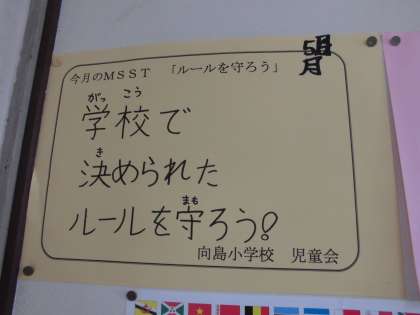 今月のMSST 「ルールを守ろう」
5月
月
がっ こう
学校で
き
決められた
まも
ルールを守ろう!
向島小学校 児童会